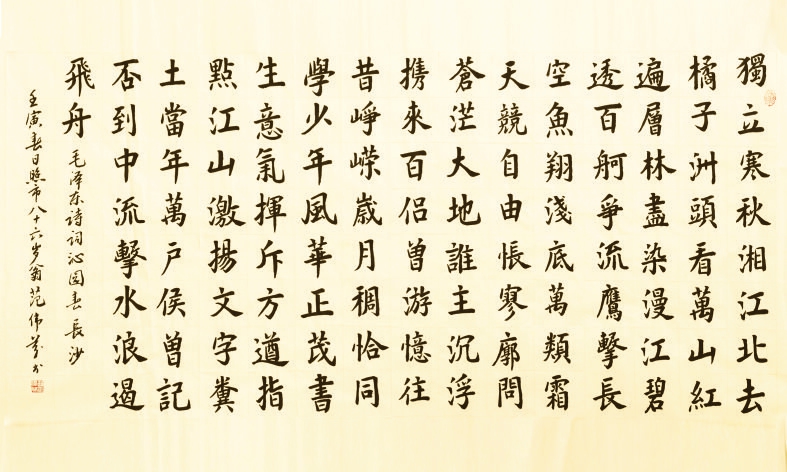 獨立寒秋湘江北去
橘子洲頭看萬山紅
遍層林盡染漫江碧
透百舸爭流鷹擊長
空魚翔淺底萬類霜
天競自由悵寥廓問
蒼茫大地誰主沉浮
携來百侣曾游憶往
昔崢嶸歲月稠恰同
學少年風華正茂書
生意氣揮斥方遒指
點江山激揚文字糞
土當年萬户侯曾記
否到中流擊水浪遏
飛舟
毛泽东詩詞沁园春長沙
壬寅春日照市八十六岁翁范伟书